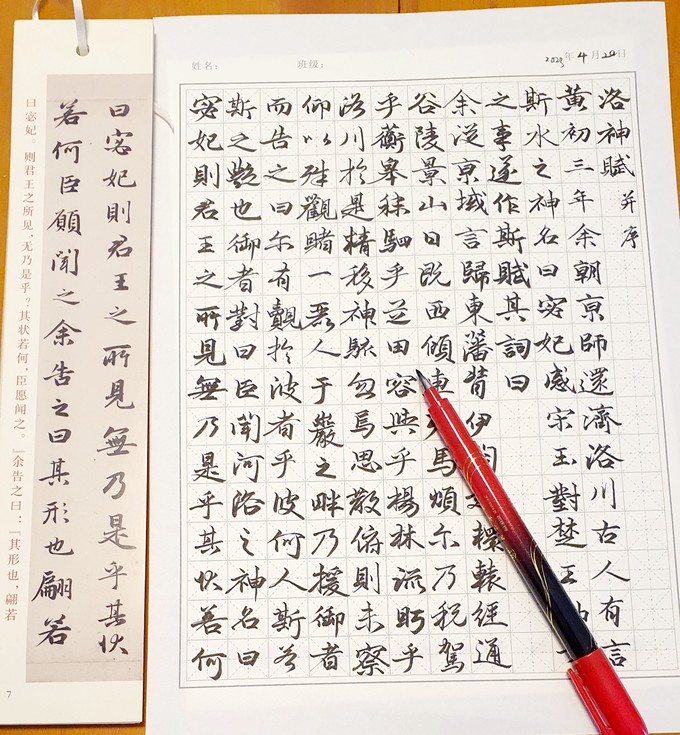 姓名：
班级：
2023年4月20日
洛神賦并序
黄初三年余朝京師還濟洛川古人有言
斯水之神名曰宓妃感宋玉對楚王
之事遂作斯賦其詞曰
余從京域言歸東藩背伊轘轅經通
谷陵景山日既西傾車馬煩尔乃税駕
乎蘅皋秣駟乎芝田容與乎楊林流眄乎
洛川於是精移神駭忽焉思散俯則未察
仰以殊觀睹一麗人于巖之畔乃援御者
而告之曰尔有覿於彼者乎彼何人斯若
斯之艷也御者對曰臣聞河洛之神名曰
宓妃則君王之所見無乃是乎其狀若何
曰宓妃則君王之所見無乃是乎其狀
若何臣願聞之余告之曰其形也翩若
曰宓妃。则君王之所见，无乃是乎？其状若何，臣愿闻之。』余告之曰：『其形也，翩若
7